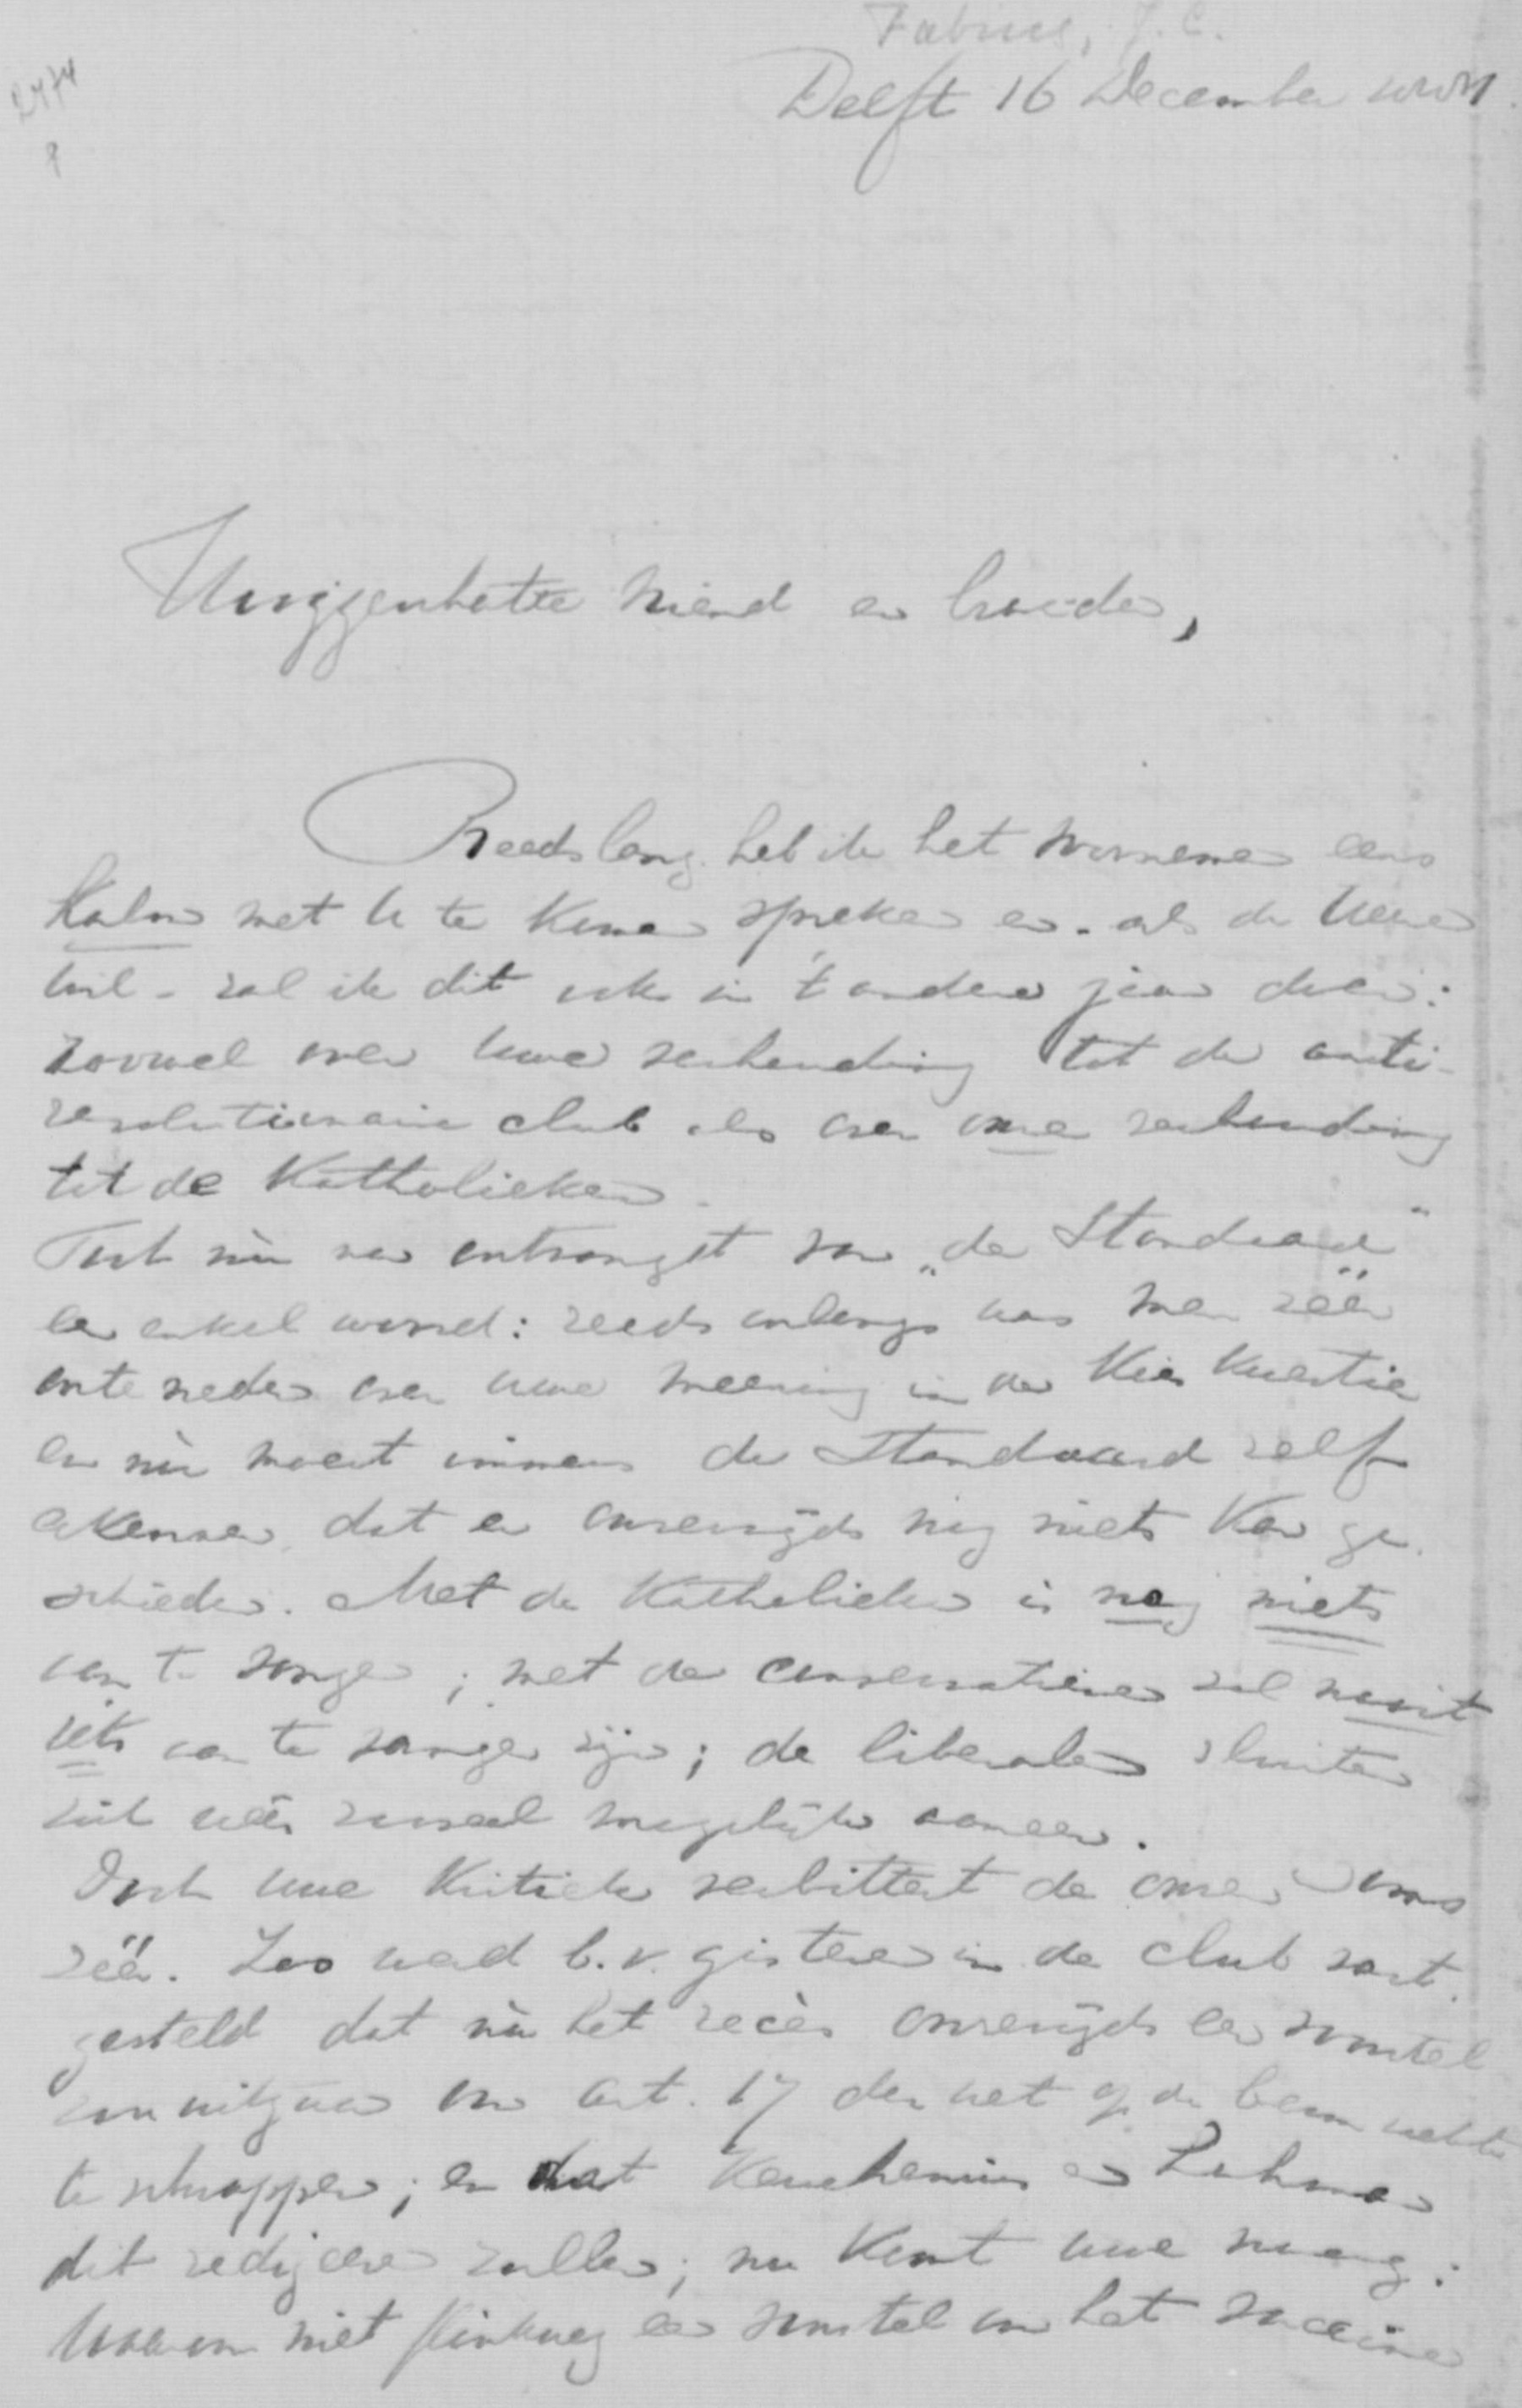 Fabius, J. C.
Delft 16 December
2474
Hooggeachte Vriend en broeder,
Reeds lang heb ik het voornemen eens
kalm met U te kunnen spreken en - als de Heere
wil - zal ik dit ook in 't andere jaar doen:
zoowel over Uwe verhouding tot de anti-
revolutionaire club als over onze verhouding
tot de Katholieken.
Toch nu na ontvangst van „de Standaard"
een enkel woord: reeds onlangs was men zéér
ontevreden over Uwe meening in de Kies Kwestie
en nu moest immers de Standaard zelf
erkennen dat er onzerzijds nog niets kan ge-
schieden. Met de Katholieken is nog niets
aan te vangen; met de conservatieven zal nooit
iets aan te vangen zijn; de liberalen sluiten
zich weêr zooveel mogelijk aaneen.
Doch Uwe Kritiek verbittert de onzen soms
zéér. Zoo werd b.v. gisteren in de club vast-
gesteld dat na het recès onzerzijds een voorstel
zou uitgaan om art. 17 der wet op de besm. ziekten
te schrappen; en dat Keuchenius en Lohman
dit redigeren zullen; nu komt Uwe vraag:
Waarom niet flinkweg een voorstel om het vaccine